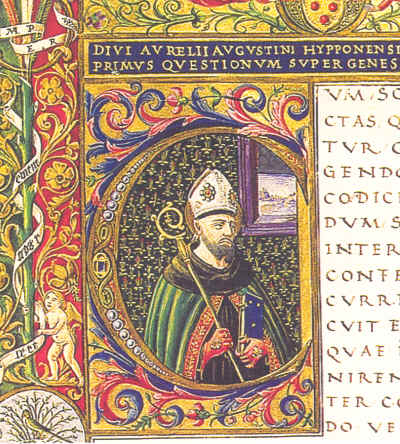 DIVI AVRELII AVGVSTINI HYPPONENSI
PRIMVS QVESTIONVM SVPER GENES
C
VM SC
CTAS Q
TVR C
GENDO
CODICI
DVM S
INTER
CONFE
CVRRE
CVIT E
QVAE I
NIREN
TER CO
DO VE
M P
E R